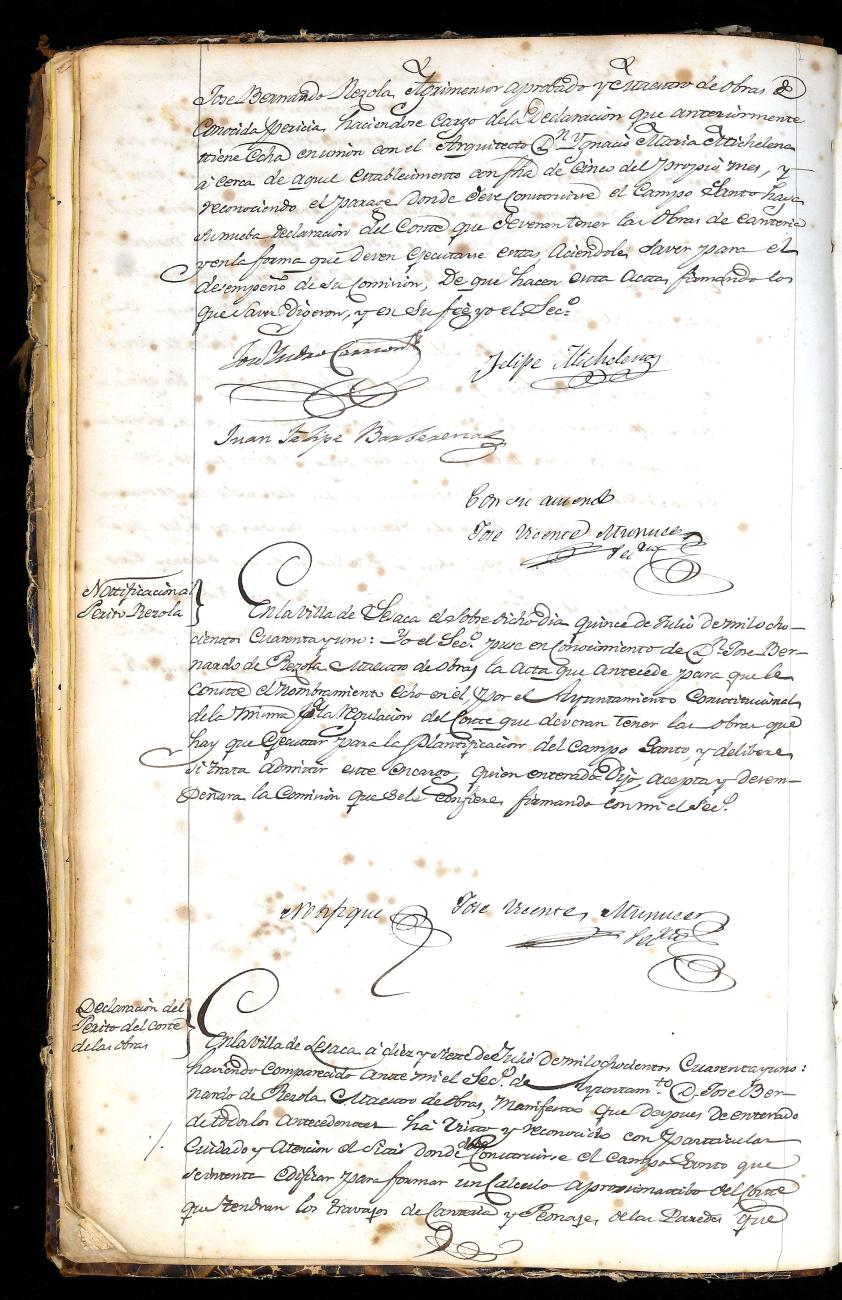 Jose Bernardo Rezola, Agrimensor aprobado y Maestro de obras de
Conocida pericia, haciendose Cargo dela Declaracion que anteriormente
tiene Echa en union con el Arquitecto Dn Ygnacio Maria Michelena
á cerca de aquel establecimento con fha de Cinco del propio mes, y
reconociendo el parage donde deve Construirse el Campo Santo haga
su nueba declaracion del Coste que deveran tener las Obras de canteria
y en la forma que deven Ejecutarse estas, Aciendole Saver para el
desempeño de su Comision, De que hacen esta Acta, firmando los
que Saven Digeron, y en su fee yo el Secº
Jose Ysidro
Felipe Michelena
Juan Felipe Barberena
Con su acuerdo
Jose Vicente
Secrio
Notificacion al
Perito Rezola
En la Villa de Lesaca el sobre dicho dia quince de Julio de mil ocho-
cientos Cuarenta y uno: Yo el Secº puse en Conocimiento de Dn Jose Ber-
nardo de Rezola Maestro de obras la Acta que Antecede para que le
Conste el Nombramiento Echo en él por el Ayuntamiento Constitucional
de la misma pª la regulacion del Coste que deveran tener las obras que
hay que Ejecutar para la plantificacion del Campo Santo, y delibere
si trata admitir este encargo, quien enterado Dijo, acepta y desem-
peñara la Comision que sele Confiere, firmando con mi el Secº
Notifique
Jose Vicente
Secrio
Declaracion del
Perito del Corte
de las obras
En la Villa de Lesaca á diez y siete de Julio de mil ochocientos Cuarenta y uno:
haviendo Comparecido Ante mi el Secº de Ayuntamto D. Jose Ber-
nardo de Rezola Maestro de obras, Manifesto que despues de enterado
de todos los Antecedentes ha Visto y reconocido con particular
Cuidado y Atencion el Sitio donde debe Construirse el Campo Santo que
se intenta Edificar para formar un Calculo aproximativo del Coste
que tendran los travajos de Canteria y Peonaje, de las Paredes que